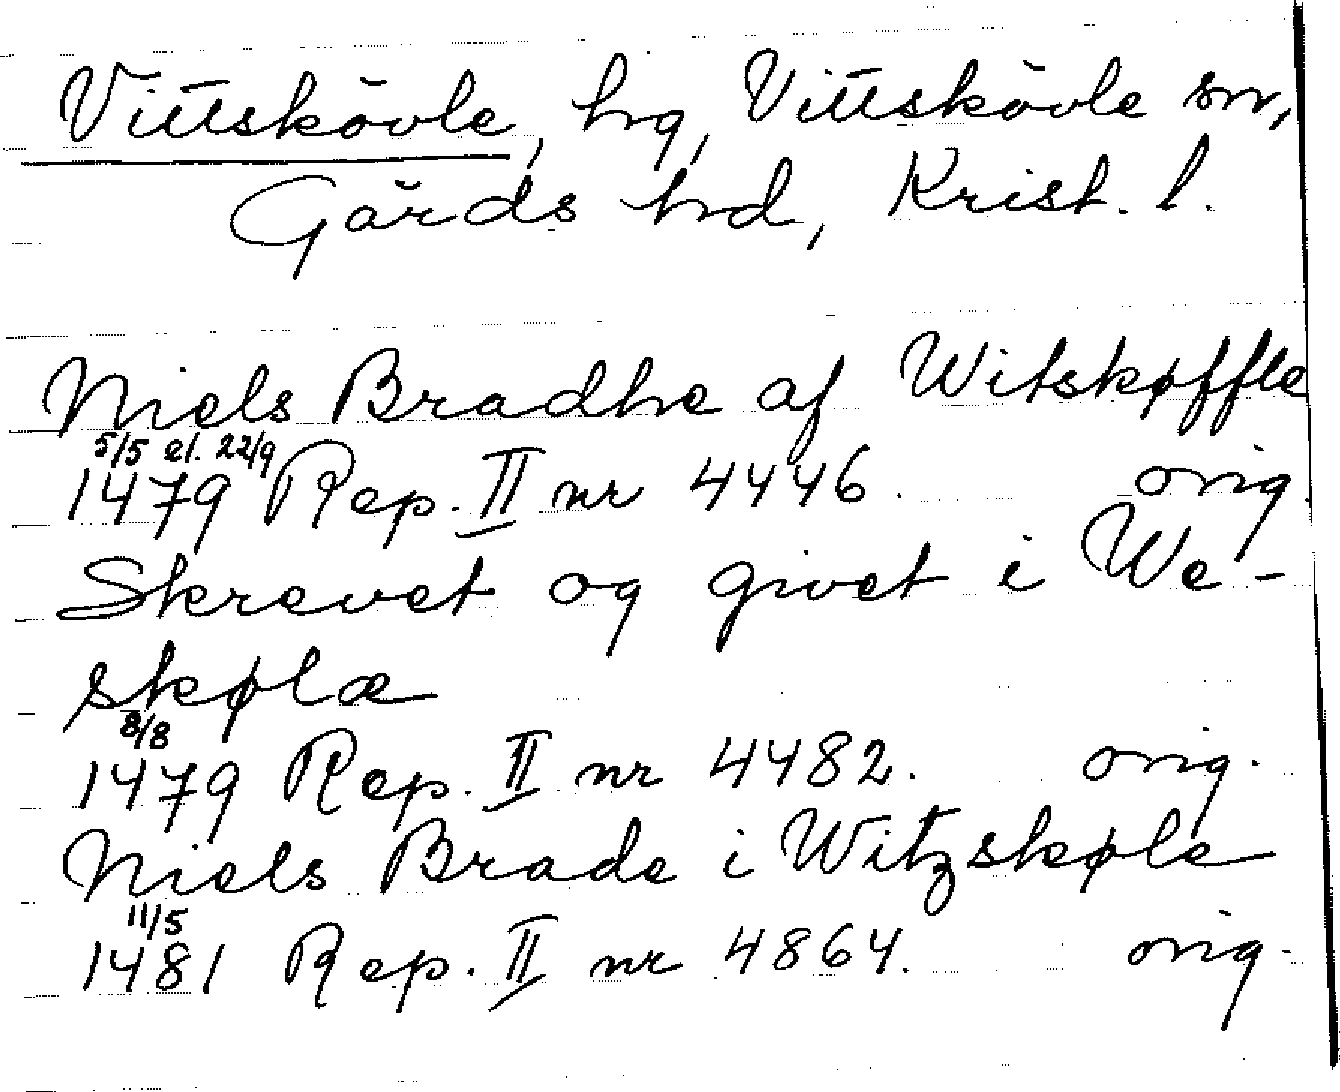 Vittskövle, hg, Vittskövle sn,
Gärds hd, Krist. l.
Niels Bradhe af Witskøffle
5/5 el. 22/9
1479 Rep. II nr 4446. orig.
Skrevet og givet i We-
skølæ
8/8
1479 Rep. II nr 4482. orig.
Niels Brade i Witzskøle
11/5
1481 Rep. II nr 4864. orig.